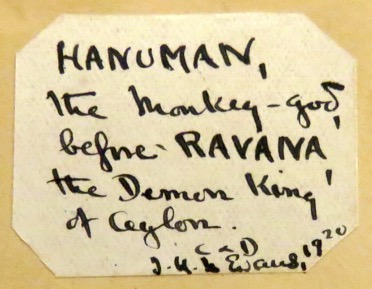 HANUMAN,
the Monkey-god,
before RAVANA
the Demon King
of Ceylon.
Evans, 1920